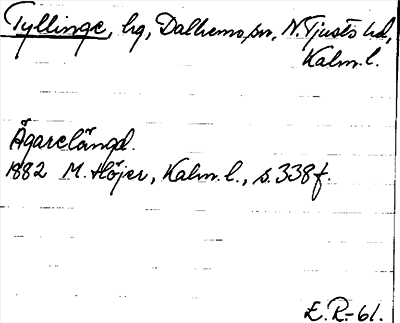 Tyllinge, hg, Dalhems sn, N. Tjusts hd,
Kalm. l.
Ägarelängd.
1882 M. Höjer, Kalm. l., s. 338 f.
E. R-61.